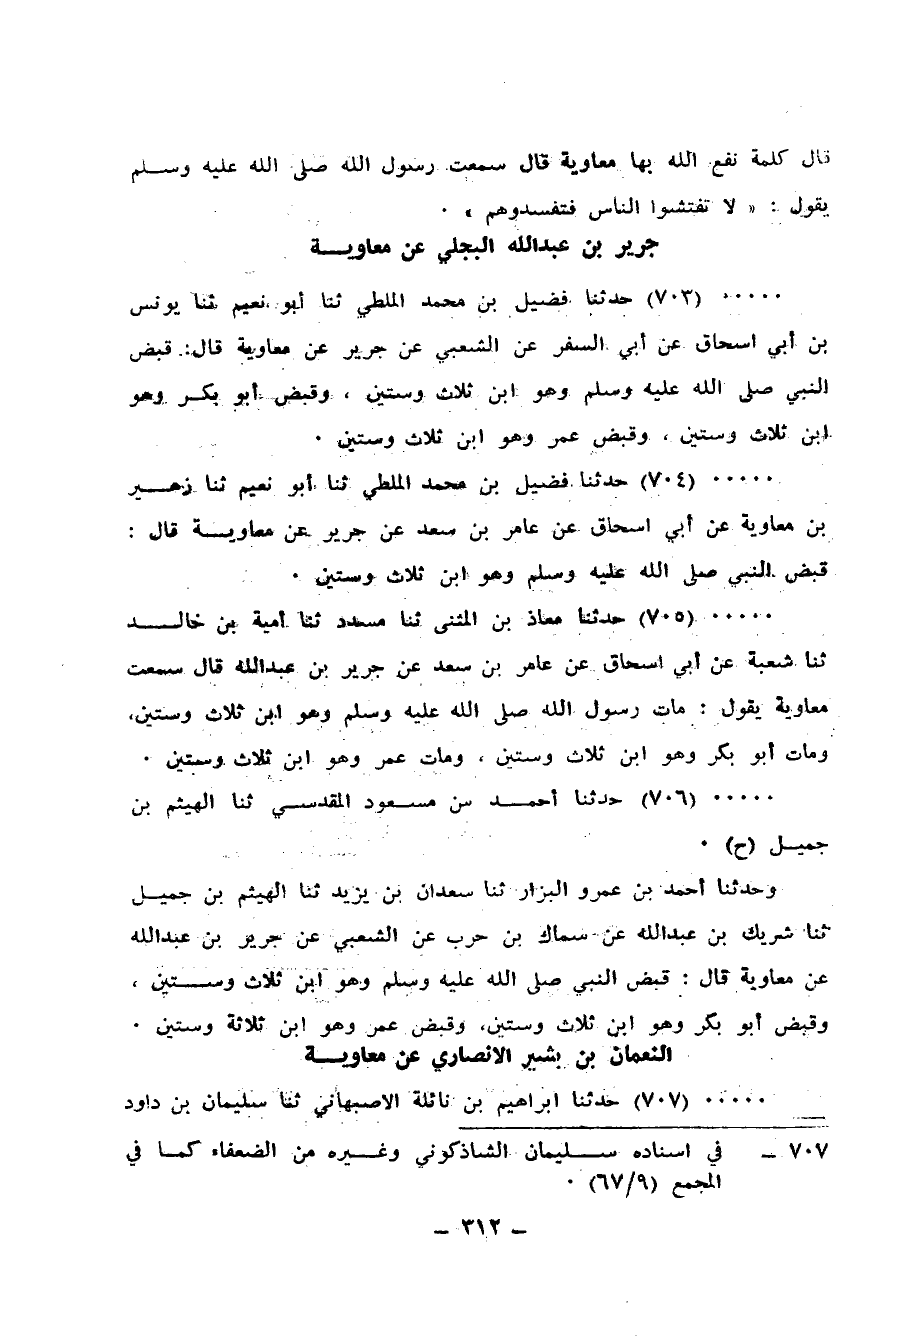 قال كلمة نفع الله بها معاوية قال سمعت رسول الله صلى الله عليه وسلم
يقول : « لا تفتشوا الناس فتفسدوهم » ٠
جرير بن عبدالله البجلي عن معاويــة
٠٠٠٠٠ (٧٠٣) حدثنا فضيل بن محمد الملطي ثنا أبو نعيم ثنا يونس
بن أبي اسحاق عن أبي السفر عن الشعبي عن جرير عن معاوية قال: قبض
النبي صلى الله عليه وسلم وهو ابن ثلاث وستين ، وقبض أبو بكـر وهو
ابن ثلاث وستين ، وقبض عمر وهو ابن ثلاث وستين ٠
٠٠٠٠٠ (٧٠٤) حدثنا فضيل بن محمد الملطي ثنا أبو نعيم ثنا زهــير
بن معاوية عن أبي اسحاق عن عامر بن سعد عن جرير عن معاويــة قال :
قبض النبي صلى الله عليه وسلم وهو ابن ثلاث وستين ٠
٠٠٠٠٠ (٧٠٥) حدثنا معاذ بن المثنى ثنا مسدد ثنا أمية بن خالــد
ثنا شعبة عن أبي اسحاق عن عامر بن سعد عن جرير بن عبدالله قال سمعت
معاوية يقول : مات رسول الله صلى الله عليه وسلم وهو ابن ثلاث وستين،
ومات أبو بكر وهو ابن ثلاث وستين ، ومات عمر وهو ابن ثلاث وستين ٠
٠٠٠٠٠ (٧٠٦) حدثنا أحمــد بن مسـعود المقدسـي ثنا الهيثم بن
جميـل (ح) ٠
وحدثنا أحمد بن عمرو البزار ثنا سعدان بن يزيد ثنا الهيثم بن جميـل
ثنا شريك بن عبدالله عن سماك بن حرب عن الشعبي عن جرير بن عبدالله
عن معاوية قال : قبض النبي صلى الله عليه وسلم وهو ابن ثلاث وســتين ،
وقبض أبو بكر وهو ابن ثلاث وستين، وقبض عمر وهو ابن ثلاثة وستين ٠
النعمان بن بشير الانصاري عن معاويــة
٠٠٠٠٠ (٧٠٧) حدثنا ابراهيم بن نائلة الاصبهاني ثنا سليمان بن داود
٧٠٧ ـ في اسناده ســليمان الشاذكوني وغـيره من الضعفاء كمـا في
المجمع (٦٧/٩) ٠
ـ ٣١٢ ـ